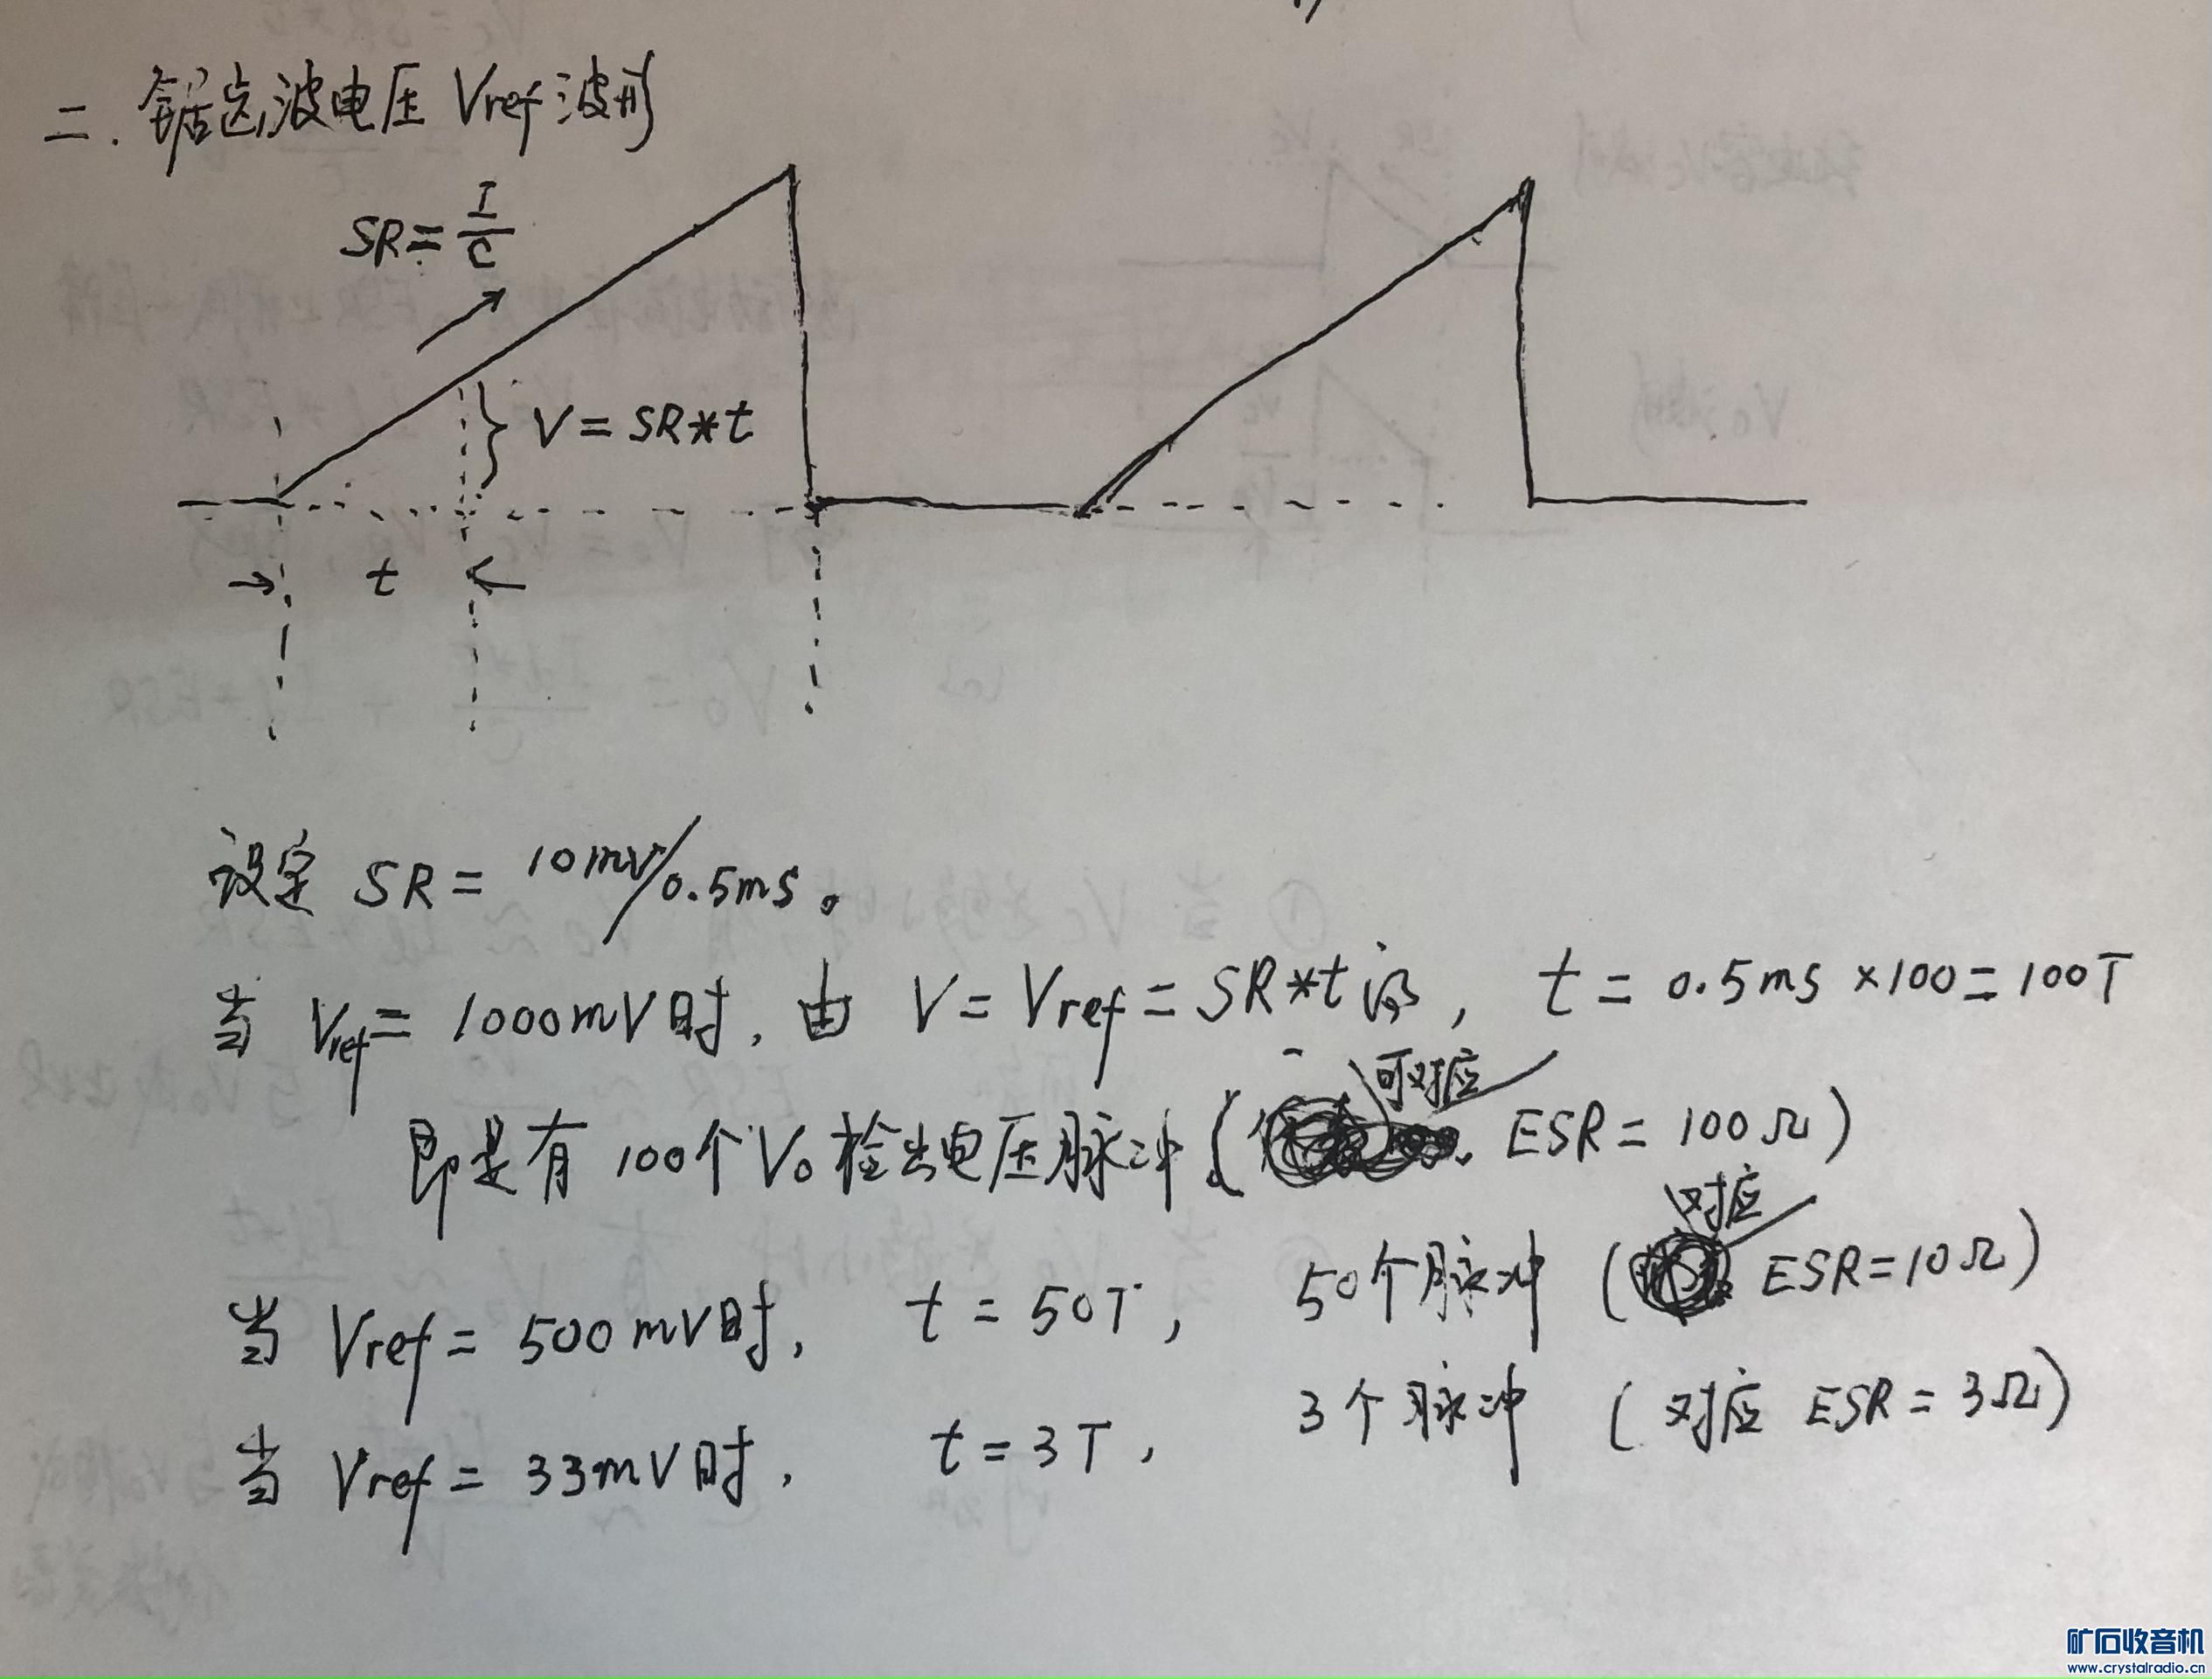 二. 锯齿波电压 Vref 波形
SR = I/C
V = SR*t
t
设定 SR = 10mV/0.5ms。
当 Vref = 1000mV时, 由 V = Vref = SR*t 得, t = 0.5ms ×100 = 100T
即是有 100个 Vo 检出电压脉冲 ( 可对应 ESR = 100Ω )
当 Vref = 500mV时, t = 50T, 50个脉冲 ( 对应 ESR=10Ω )
当 Vref = 33mV时, t = 3T, 3个脉冲 ( 对应 ESR = 3Ω )
矿石收音机
www.crystalradio.cn